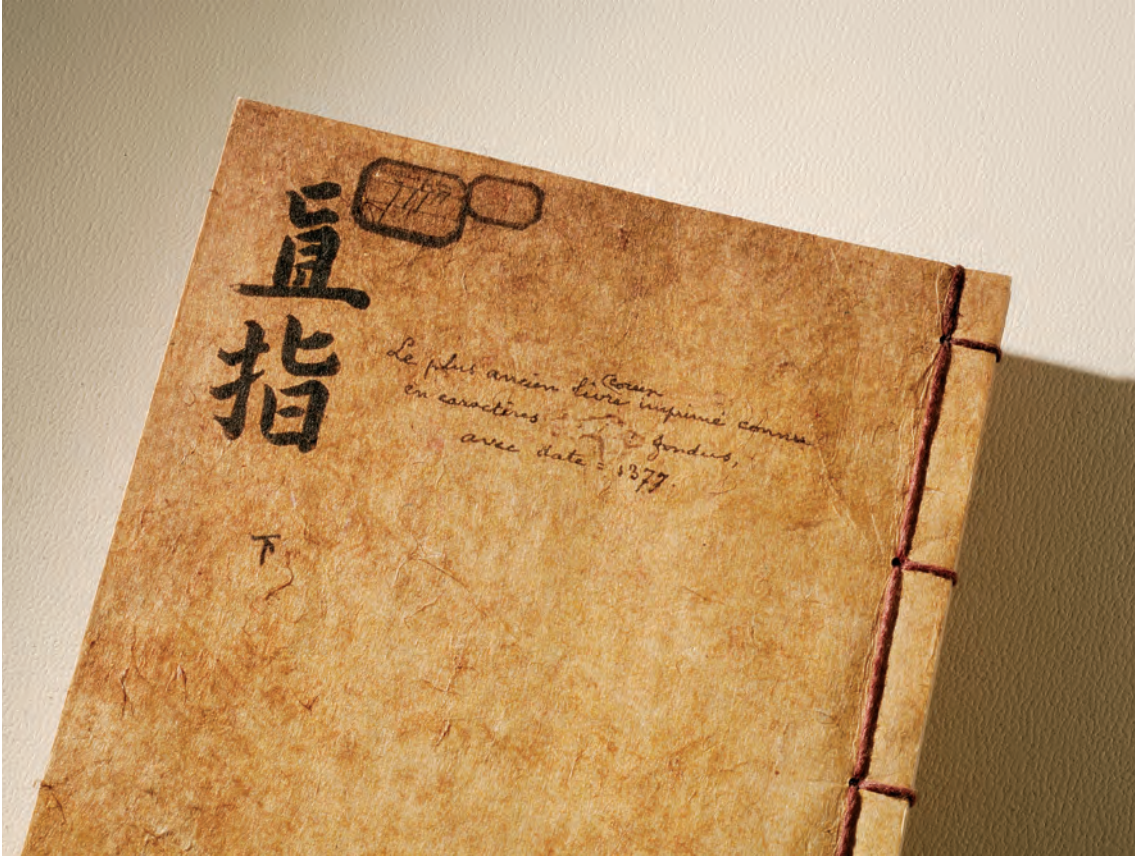 直指
下
Le plus ancien livre imprimé connu
en caractères fondus,
avec date = 1377.